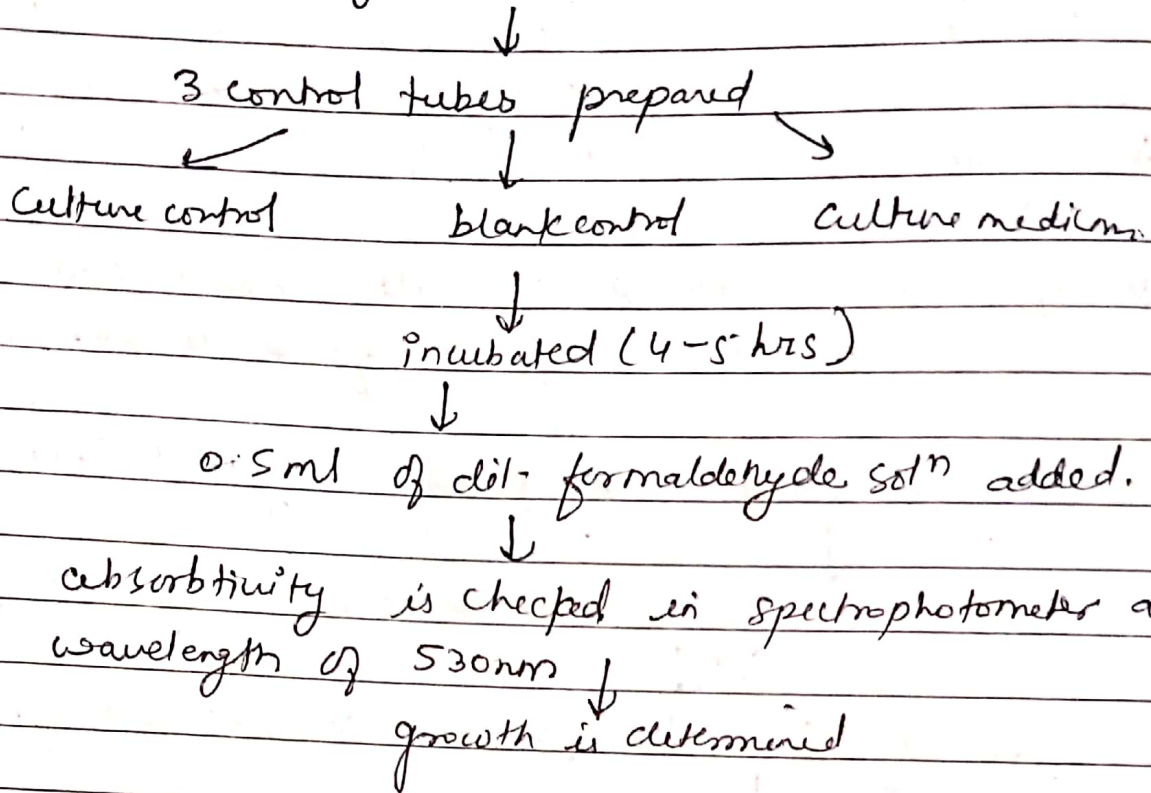 3 control tubes prepared
Culture control blank control Culture medium.
incubated (4-5 hrs)
0.5ml of dil- formaldehyde solⁿ added.
absorbtivity is checked in spectrophotometer a
wavelength of 530nm
growth is determined